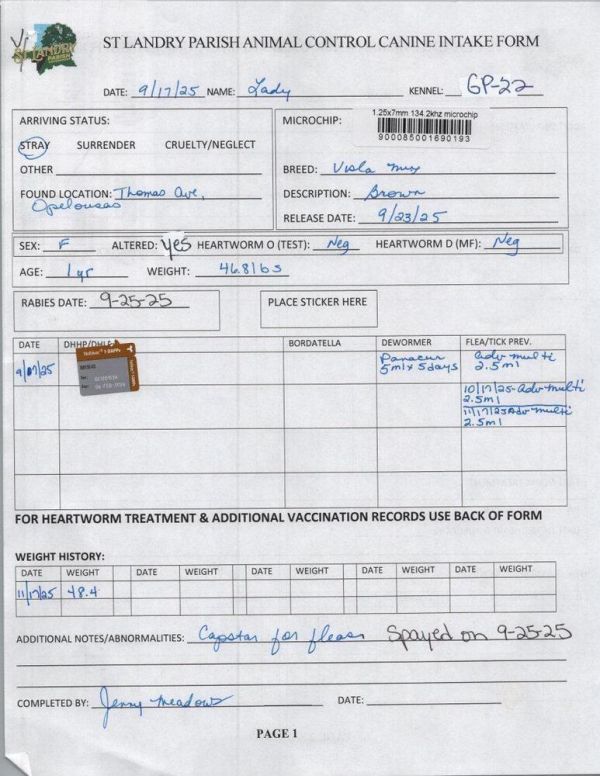 ST LANDRY
PARISH
ST LANDRY PARISH ANIMAL CONTROL CANINE INTAKE FORM
DATE: 9/17/25 NAME: Lady KENNEL: GP-22
ARRIVING STATUS:
STRAY SURRENDER CRUELTY/NEGLECT
OTHER
FOUND LOCATION: Thomas Ave,
Opelousas
MICROCHIP: 1.25x7mm 134.2khz microchip
900085001690193
BREED: Visla mix
DESCRIPTION: Brown
RELEASE DATE: 9/23/25
SEX: F ALTERED: yes HEARTWORM O (TEST): Neg HEARTWORM D (MF): Neg
AGE: 1yr WEIGHT: 46.8lbs
RABIES DATE: 9-25-25
PLACE STICKER HERE
DATE DHHP/DHLP BORDATELLA DEWORMER FLEA/TICK PREV.
9/17/25 Panacur Adv multi
5ml x 5days 2.5ml
10/17/25-Adv multi
2.5ml
11/17/25 Adv multi
2.5ml
FOR HEARTWORM TREATMENT & ADDITIONAL VACCINATION RECORDS USE BACK OF FORM
WEIGHT HISTORY:
DATE WEIGHT DATE WEIGHT DATE WEIGHT DATE WEIGHT DATE WEIGHT
11/17/25 48.4
ADDITIONAL NOTES/ABNORMALITIES: Capstar for fleas Spayed on 9-25-25
COMPLETED BY: Jenny Meadows DATE:
PAGE 1